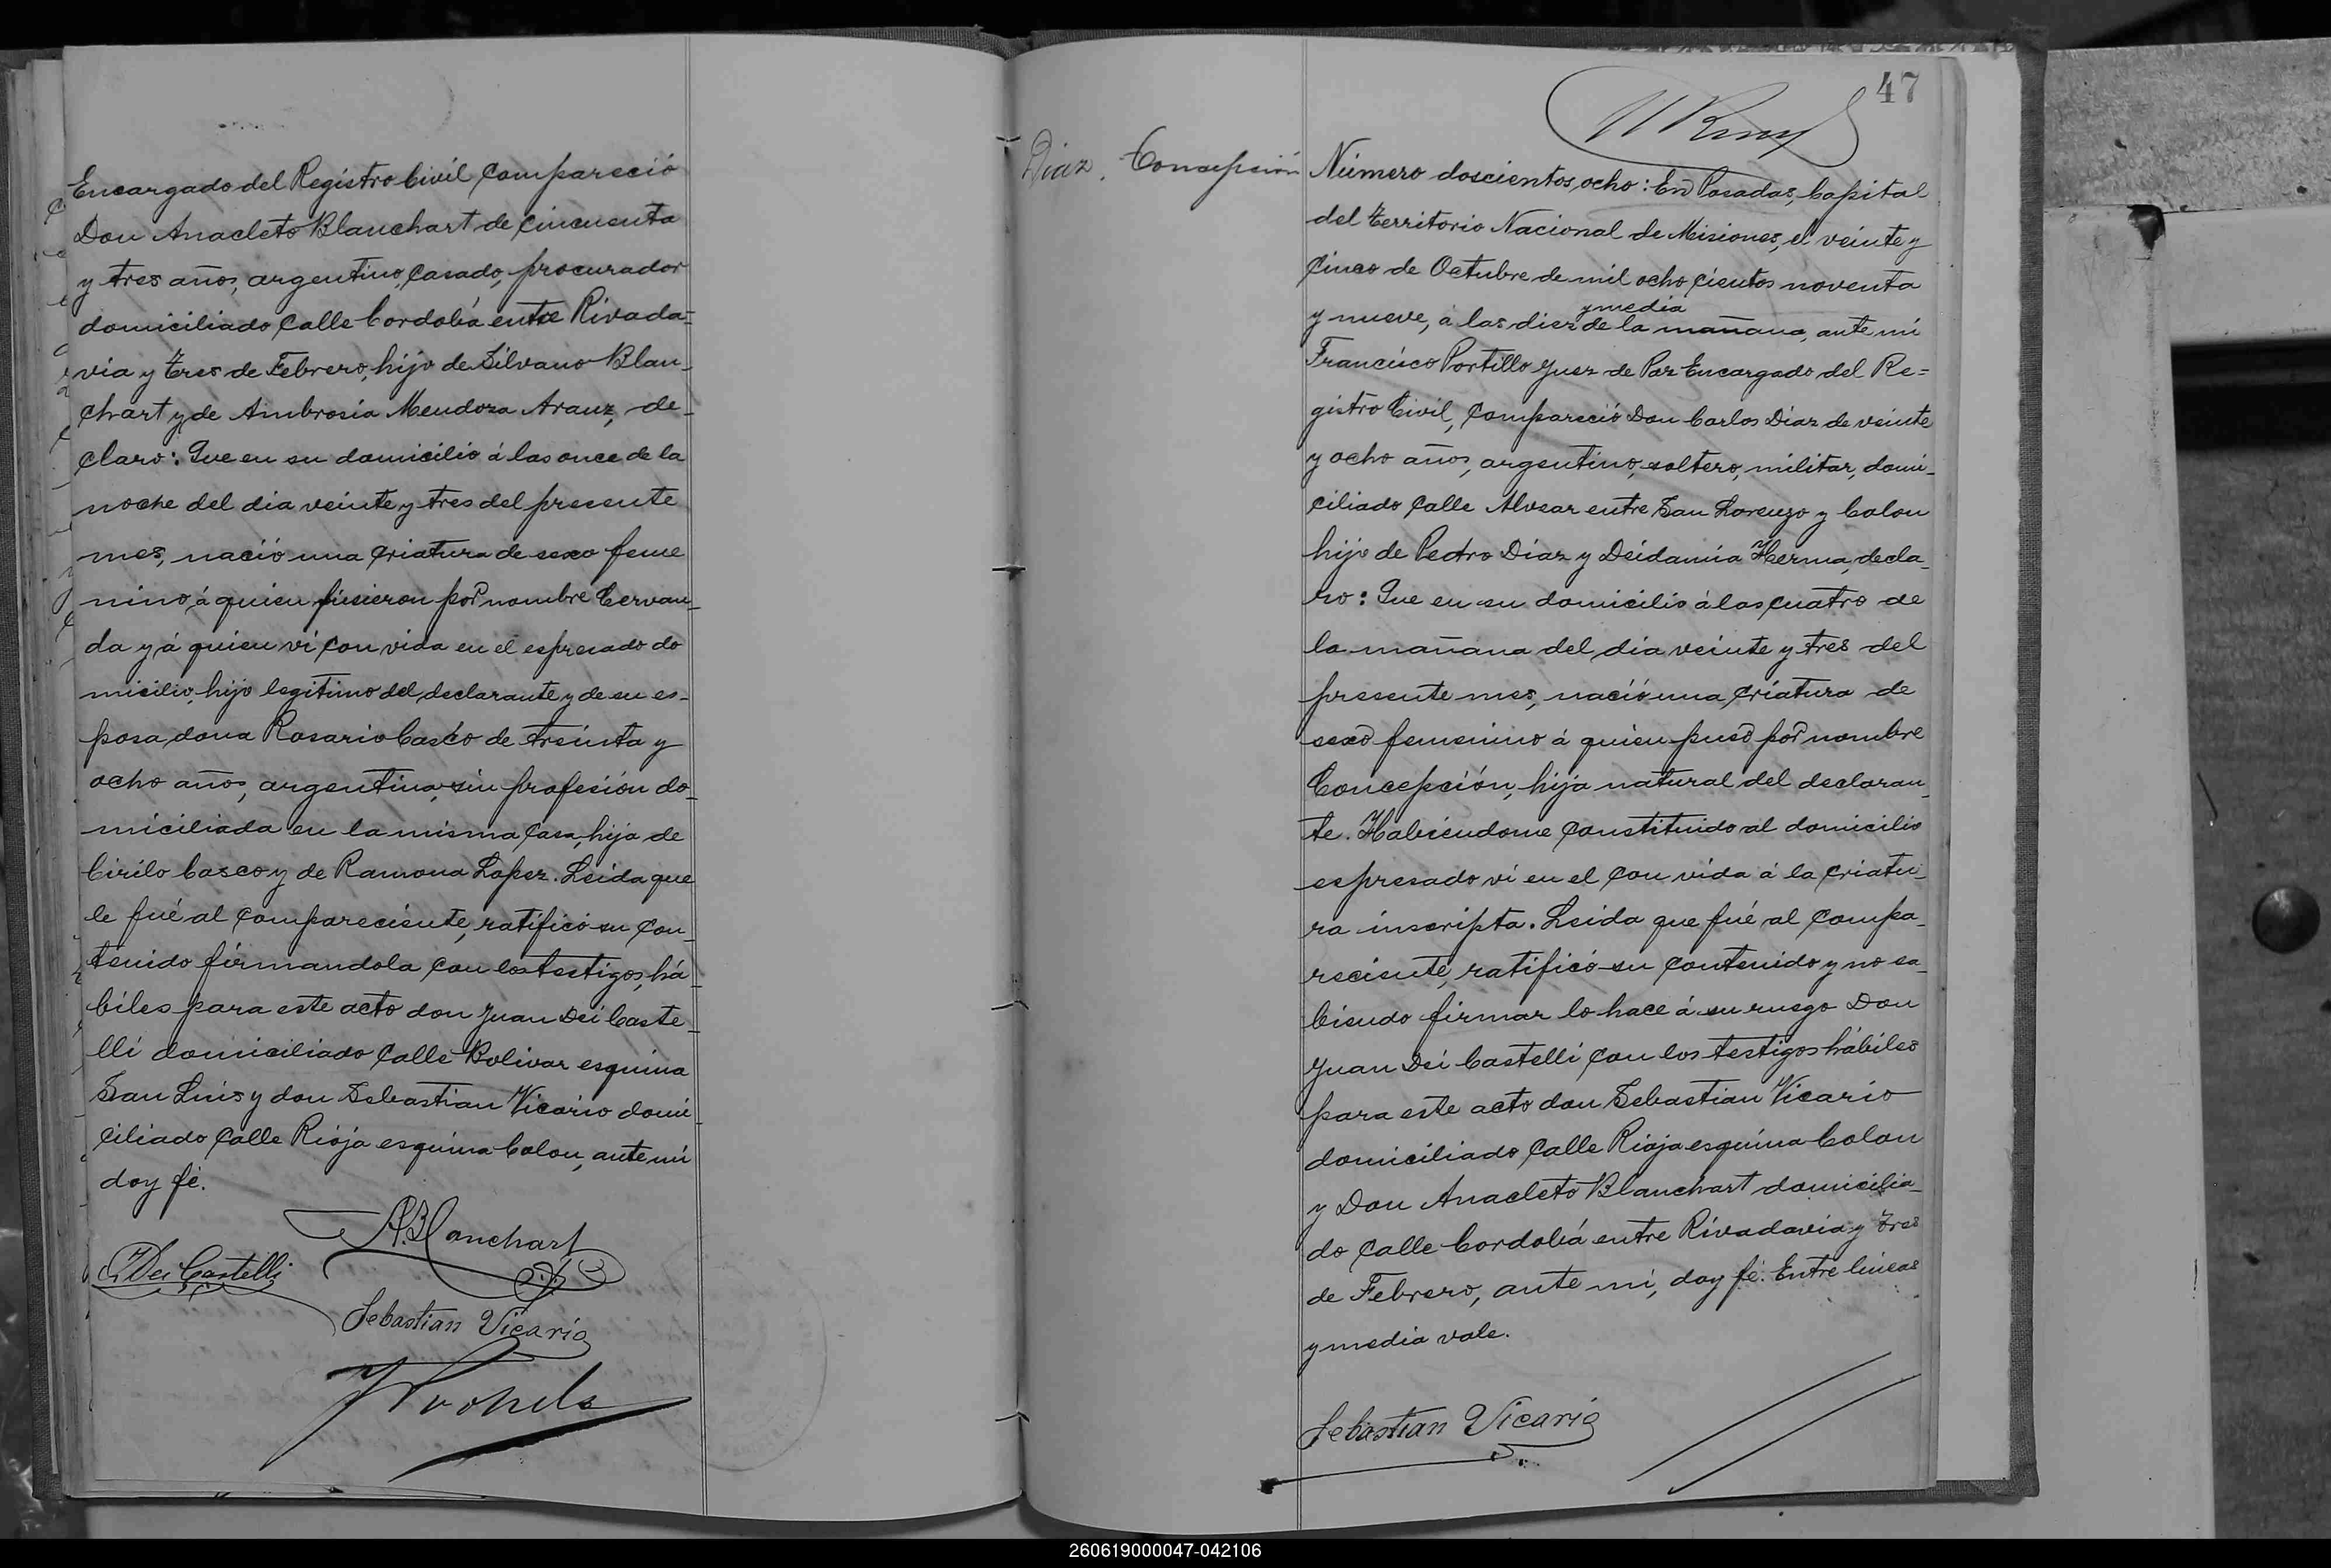 Encargado del Registro Civil compareció
Don Anacleto Blanchart de cincuenta
y tres años, argentino, casado, procurador
domiciliado calle Cordoba entre Rivada=
via y Tres de Febrero, hijo de Silvano Blan-
chart y de Ambrosia Mendoza Arauz, de-
claro: Que en su domicilio á las once de la
noche del dia veinte y tres del presente
mes, nació una criatura de sexo feme
nino, á quien pusieron por nombre Servan-
da y á quien vi con vida en el espresado do
micilio, hijo legitimo del declarante y de su es-
posa dona Rosario Casco de treinta y
ocho años, argentina, sin profesión do-
miciliada en la misma casa, hija de
Cirilo Casco y de Ramona Lopez. Leida que
le fué al compareciente, ratificó su con-
tenido firmandola con los testigos, há-
biles para este acto don Juan Dei Caste-
lli domiciliado calle Bolivar esquina
San Luis y don Sebastian Vicario domi-
ciliado calle Rioja esquina Colon, ante mi
doy fé.
A. Blanchart
J Dei Castelli
Sebastian Vicario
47
Diaz, Concepción
Número doscientos ocho: En Posadas, Capital
del Territorio Nacional de Misiones, el veinte y
cinco de Octubre de mil ocho cientos noventa
y media
y nueve, á las diez de la mañana, ante mi
Francisco Portillo Juez de Paz Encargado del Re=
gistro Civil, compareció Don Carlos Diaz de veinte
y ocho años, argentino, soltero, militar, domi-
ciliado calle Alvear entre San Lorenzo y Colon
hijo de Pedro Diaz y Deidamia Herma, decla-
ro: Que en su domicilio á las cuatro de
la mañana del dia veinte y tres del
presente mes, nació una criatura de
sexo femenino á quien puso por nombre
Concepción, hija natural del declaran-
te. Habiendome constituido al domicilio
espresado vi en el con vida á la criatu-
ra inscripta. Leida que fué al compa-
reciente, ratificó su contenido y no sa-
biendo firmar lo hace á su ruego Don
Juan Dei Castelli con los testigos hábiles
para este acto don Sebastian Vicario
domiciliado calle Rioja esquina Colon
y Don Anacleto Blanchart domicilia-
do calle Cordobá entre Rivadavia y Tres
de Febrero, ante mi, doy fé. Entre lineas
y media vale.
Sebastian Vicario
260619000047-042106